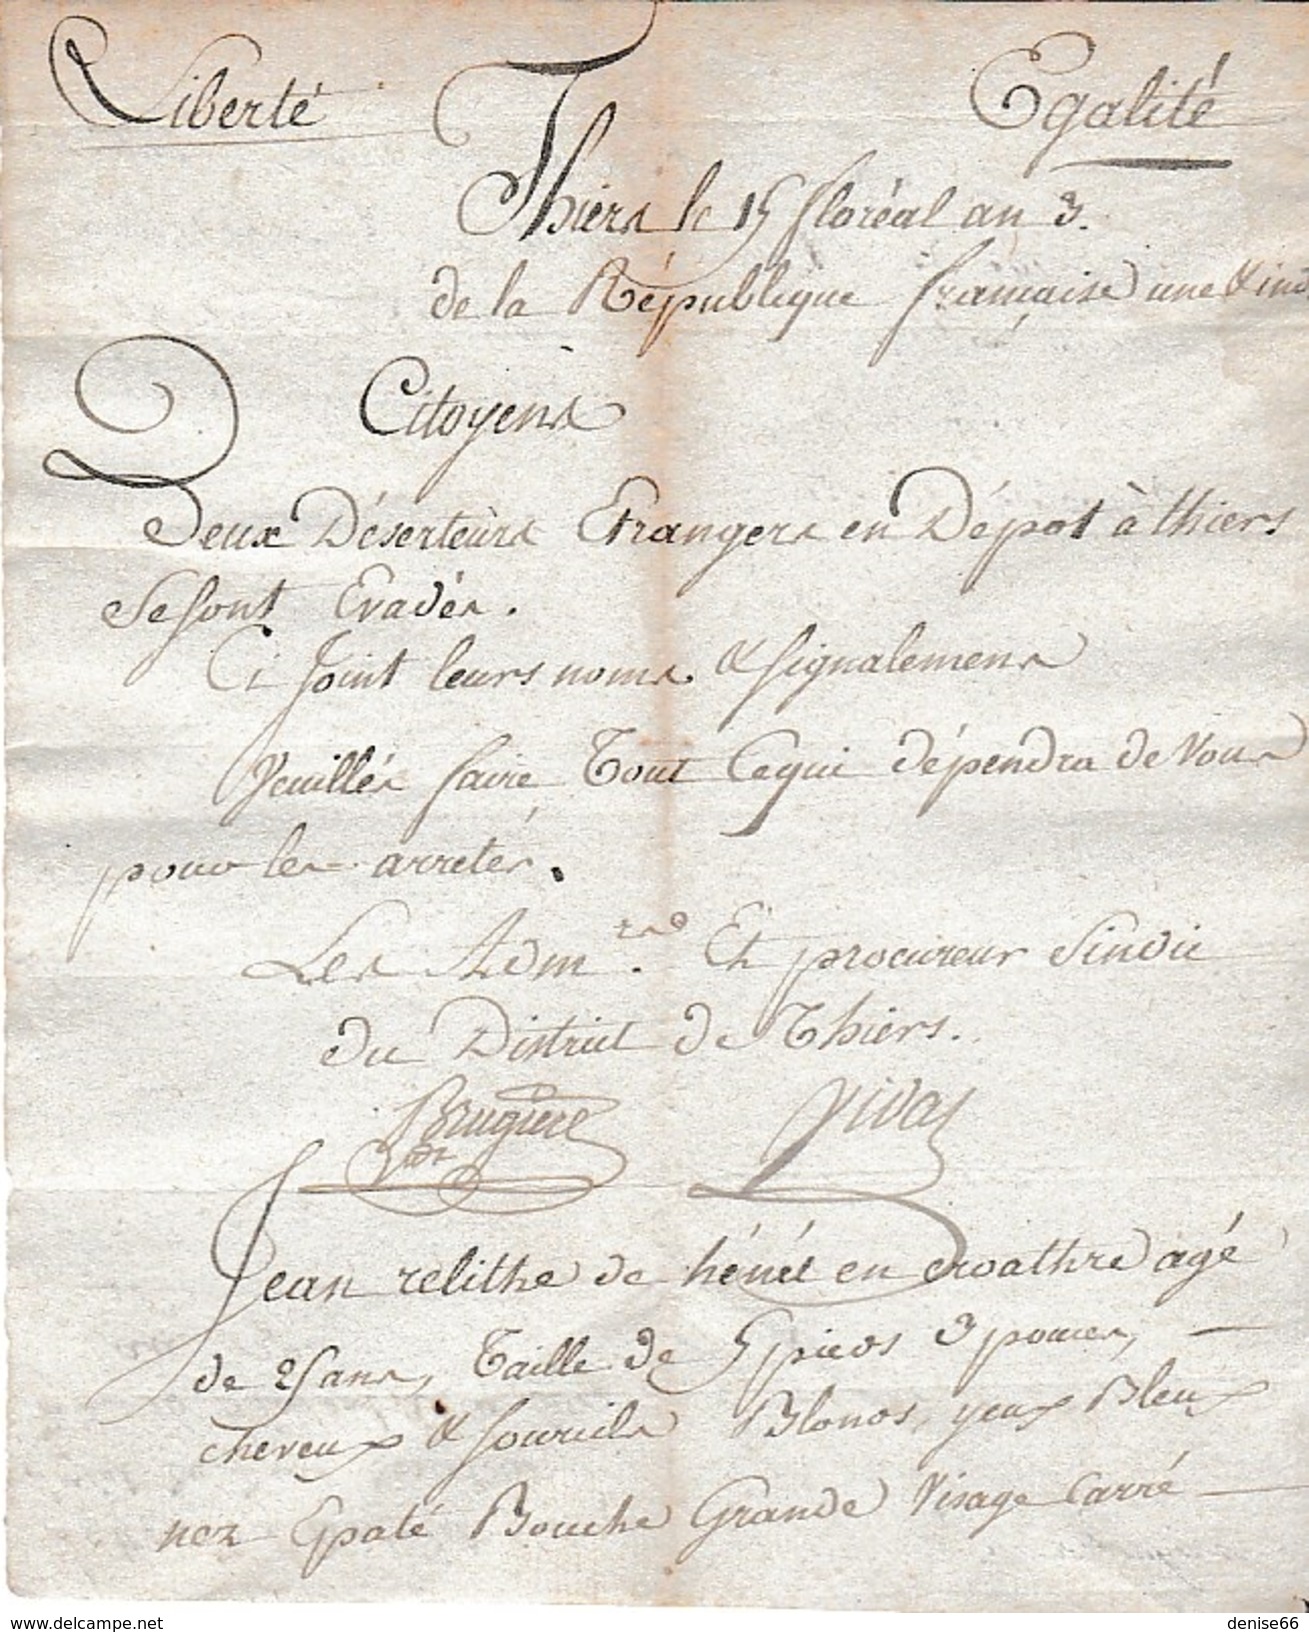 Liberté Egalité
Thiers le 15 floréal an 3.
de la République française une & ind
Citoyens
Deux Déserteurs Etrangers en Dépot à thiers
Se sont Evadés.
Ci Joint leurs noms & signalemens
Veuillés faire Tout Ce qui dépendra de Vous
pour les arretés.
Les Adm.rs Et procureur Sindic
du District de Thiers.
Brugiere Vidal
Jean relithe de hénét en croathre agé
de 25 ans, Taille de 5 pieds 3 pouces,
cheveux & sourcils Blonds, yeux Bleux
nez Epaté Bouche Grande Visage Carré
www.delcampe.net
denise66